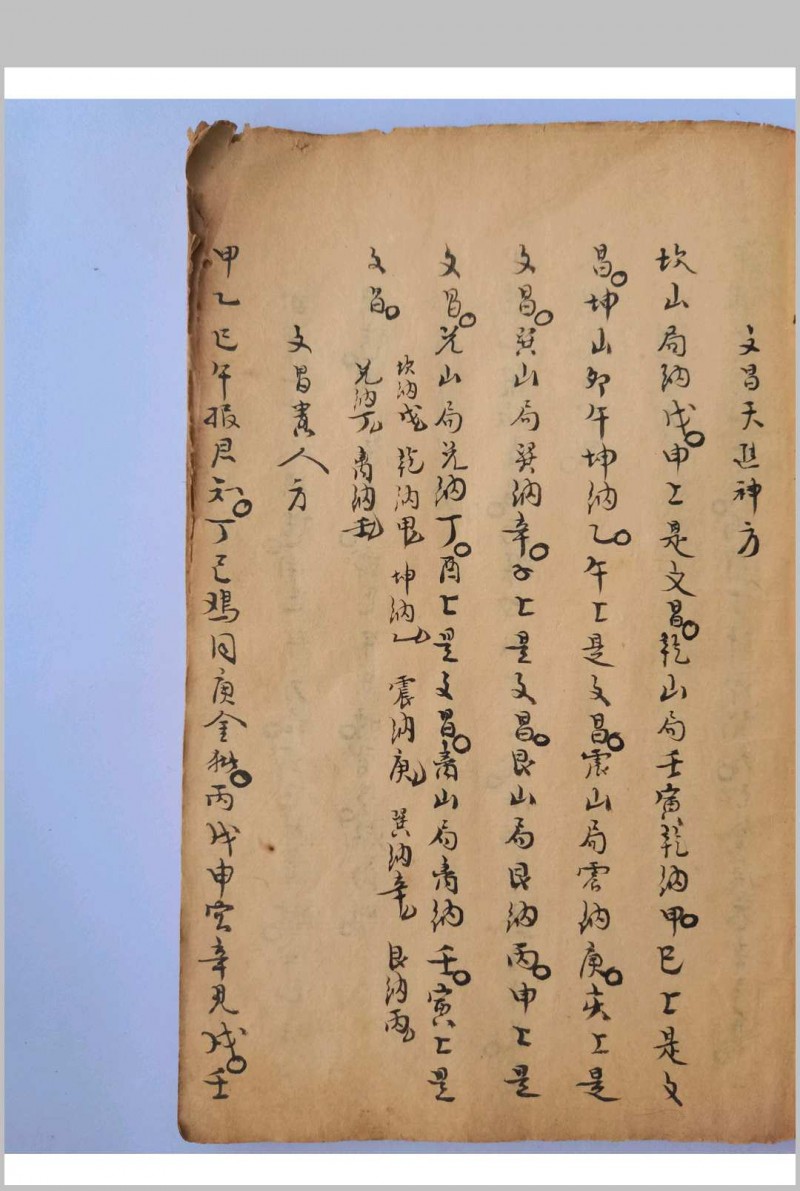 文昌天進神方
坎山局納戊。申上是文昌。乾山局壬寅乾納甲。巳上是文
昌。坤山卯午坤納乙。午上是文昌。震山局震納庚。亥上是
文昌。巽山局巽納辛。子上是文昌。艮山局艮納丙。申上是
文昌。兌山局兌納丁。酉上是文昌。离山局离納壬。寅上是
文昌。
坎納戊 乾納甲 坤納乙 震納庚 巽納辛 艮納丙
兌納丁 离納壬
文昌貴人方
甲乙巳午报君知。丁己鸡同庚金猪。丙戊申宫辛見 壬